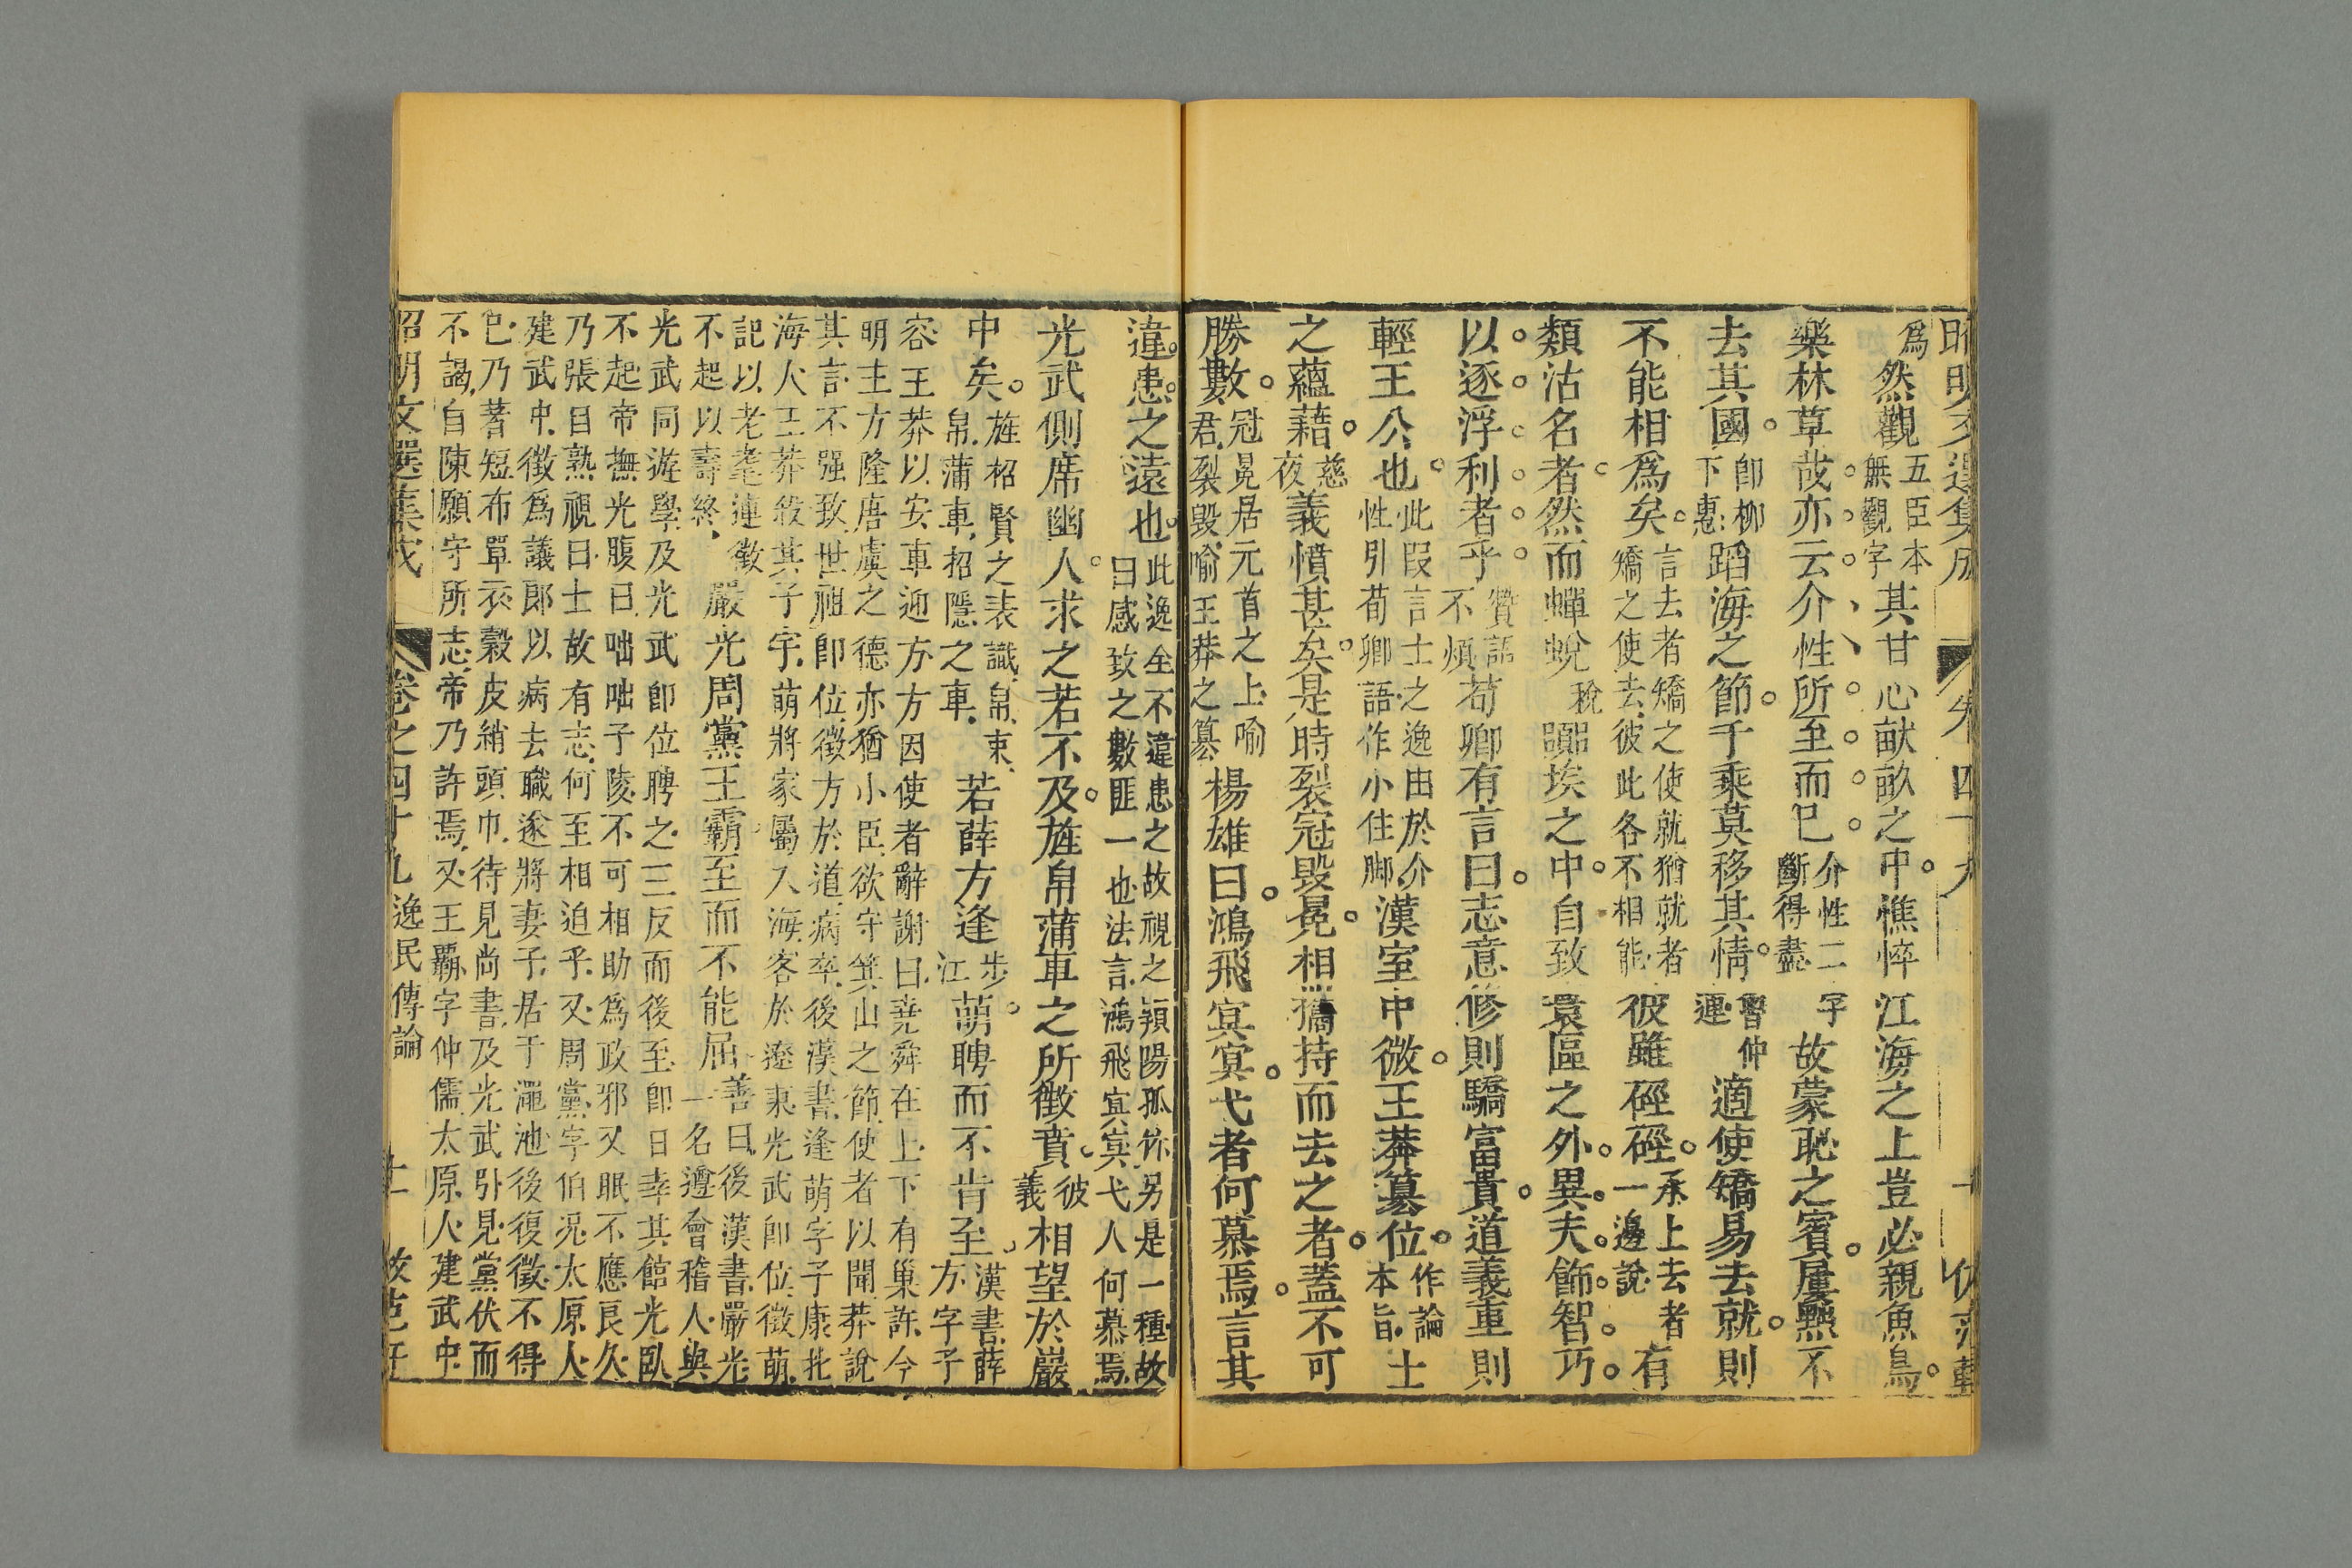 昭明文選集成 卷四十九 十 仿范軒
爲然觀五臣本無觀字其甘心畎畝之中憔悴江海之上豈必親魚鳥
樂林草哉亦云介性所至而已介性二字斷得盡故蒙恥之賓屢黜不
去其國卽柳下惠蹈海之節千乘莫移其情魯仲連適使矯易去就則
不能相爲矣言去者矯之使就猶就者矯之使去彼此各不相能彼雖硜硜承上去者一邊說有
類沽名者然而蟬蛻稅嚻埃之中自致寰區之外異夫飾智巧
以逐浮利者乎贊語不煩荀卿有言曰志意修則驕富貴道義重則
輕王公也此叚言士之逸由於介性引荀卿語作小住脚漢室中微王莽篡位作論本旨士
之蘊藉慈夜義憤甚矣是時裂冠毀冕相擕持而去之者蓋不可
勝數冠冕居元首之上喻君裂毀喻王莽之篡楊雄曰鴻飛冥冥弋者何慕焉言其
違患之遠也此逸全不違患之故視之潁陽孤竹另是一種故曰感致之數匪一也法言鴻飛冥冥弋人何慕焉
光武側席幽人求之若不及旌帛蒲車之所徵賁彼義相望於巖
中矣旌招賢之表識帛束帛蒲車招隱之車若薛方逢步江萌聘而不肯至漢書薛方字子
容王莽以安車迎方方因使者辭謝曰堯舜在上下有巢許今
明主方隆唐虞之德亦猶小臣欲守箕山之節使者以聞莽說
其言不强致世祖卽位徵方於道病卒後漢書逢萌字子康北
海人王莽殺其子宇萌將家屬入海客於遼東光武卽位徵萌
託以老耄連徵不起以壽終嚴光周黨王霸至而不能屈善曰後漢書嚴光一名遵會稽人與
光武同遊學及光武卽位聘之三反而後至卽日幸其館光臥
不起帝撫光腹曰咄咄子陵不可相助爲政邪又眠不應良久
乃張目熟視曰士故有志何至相迫乎又周黨字伯况太原人
建武中徵爲議郎以病去職遂將妻子居于澠池後復徵不得
已乃著短布單衣穀皮綃頭巾待見尚書及光武引見黨伏而
不謁自陳願守所志帝乃許焉又王霸字仲儒太原人建武中
昭明文選集成 卷之四十九 逸民傳論 十一 仿范軒